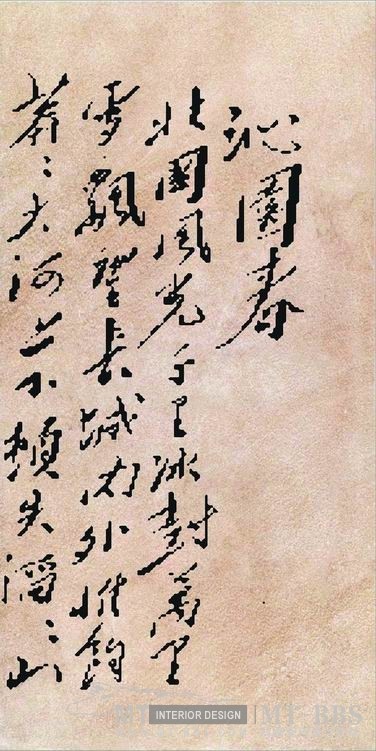 沁園春
北國風光千里冰封萬里
雪飄望長城内外惟餘
莽々大河上下頓失滔々山
INTERIOR DESIGN
MT BBS